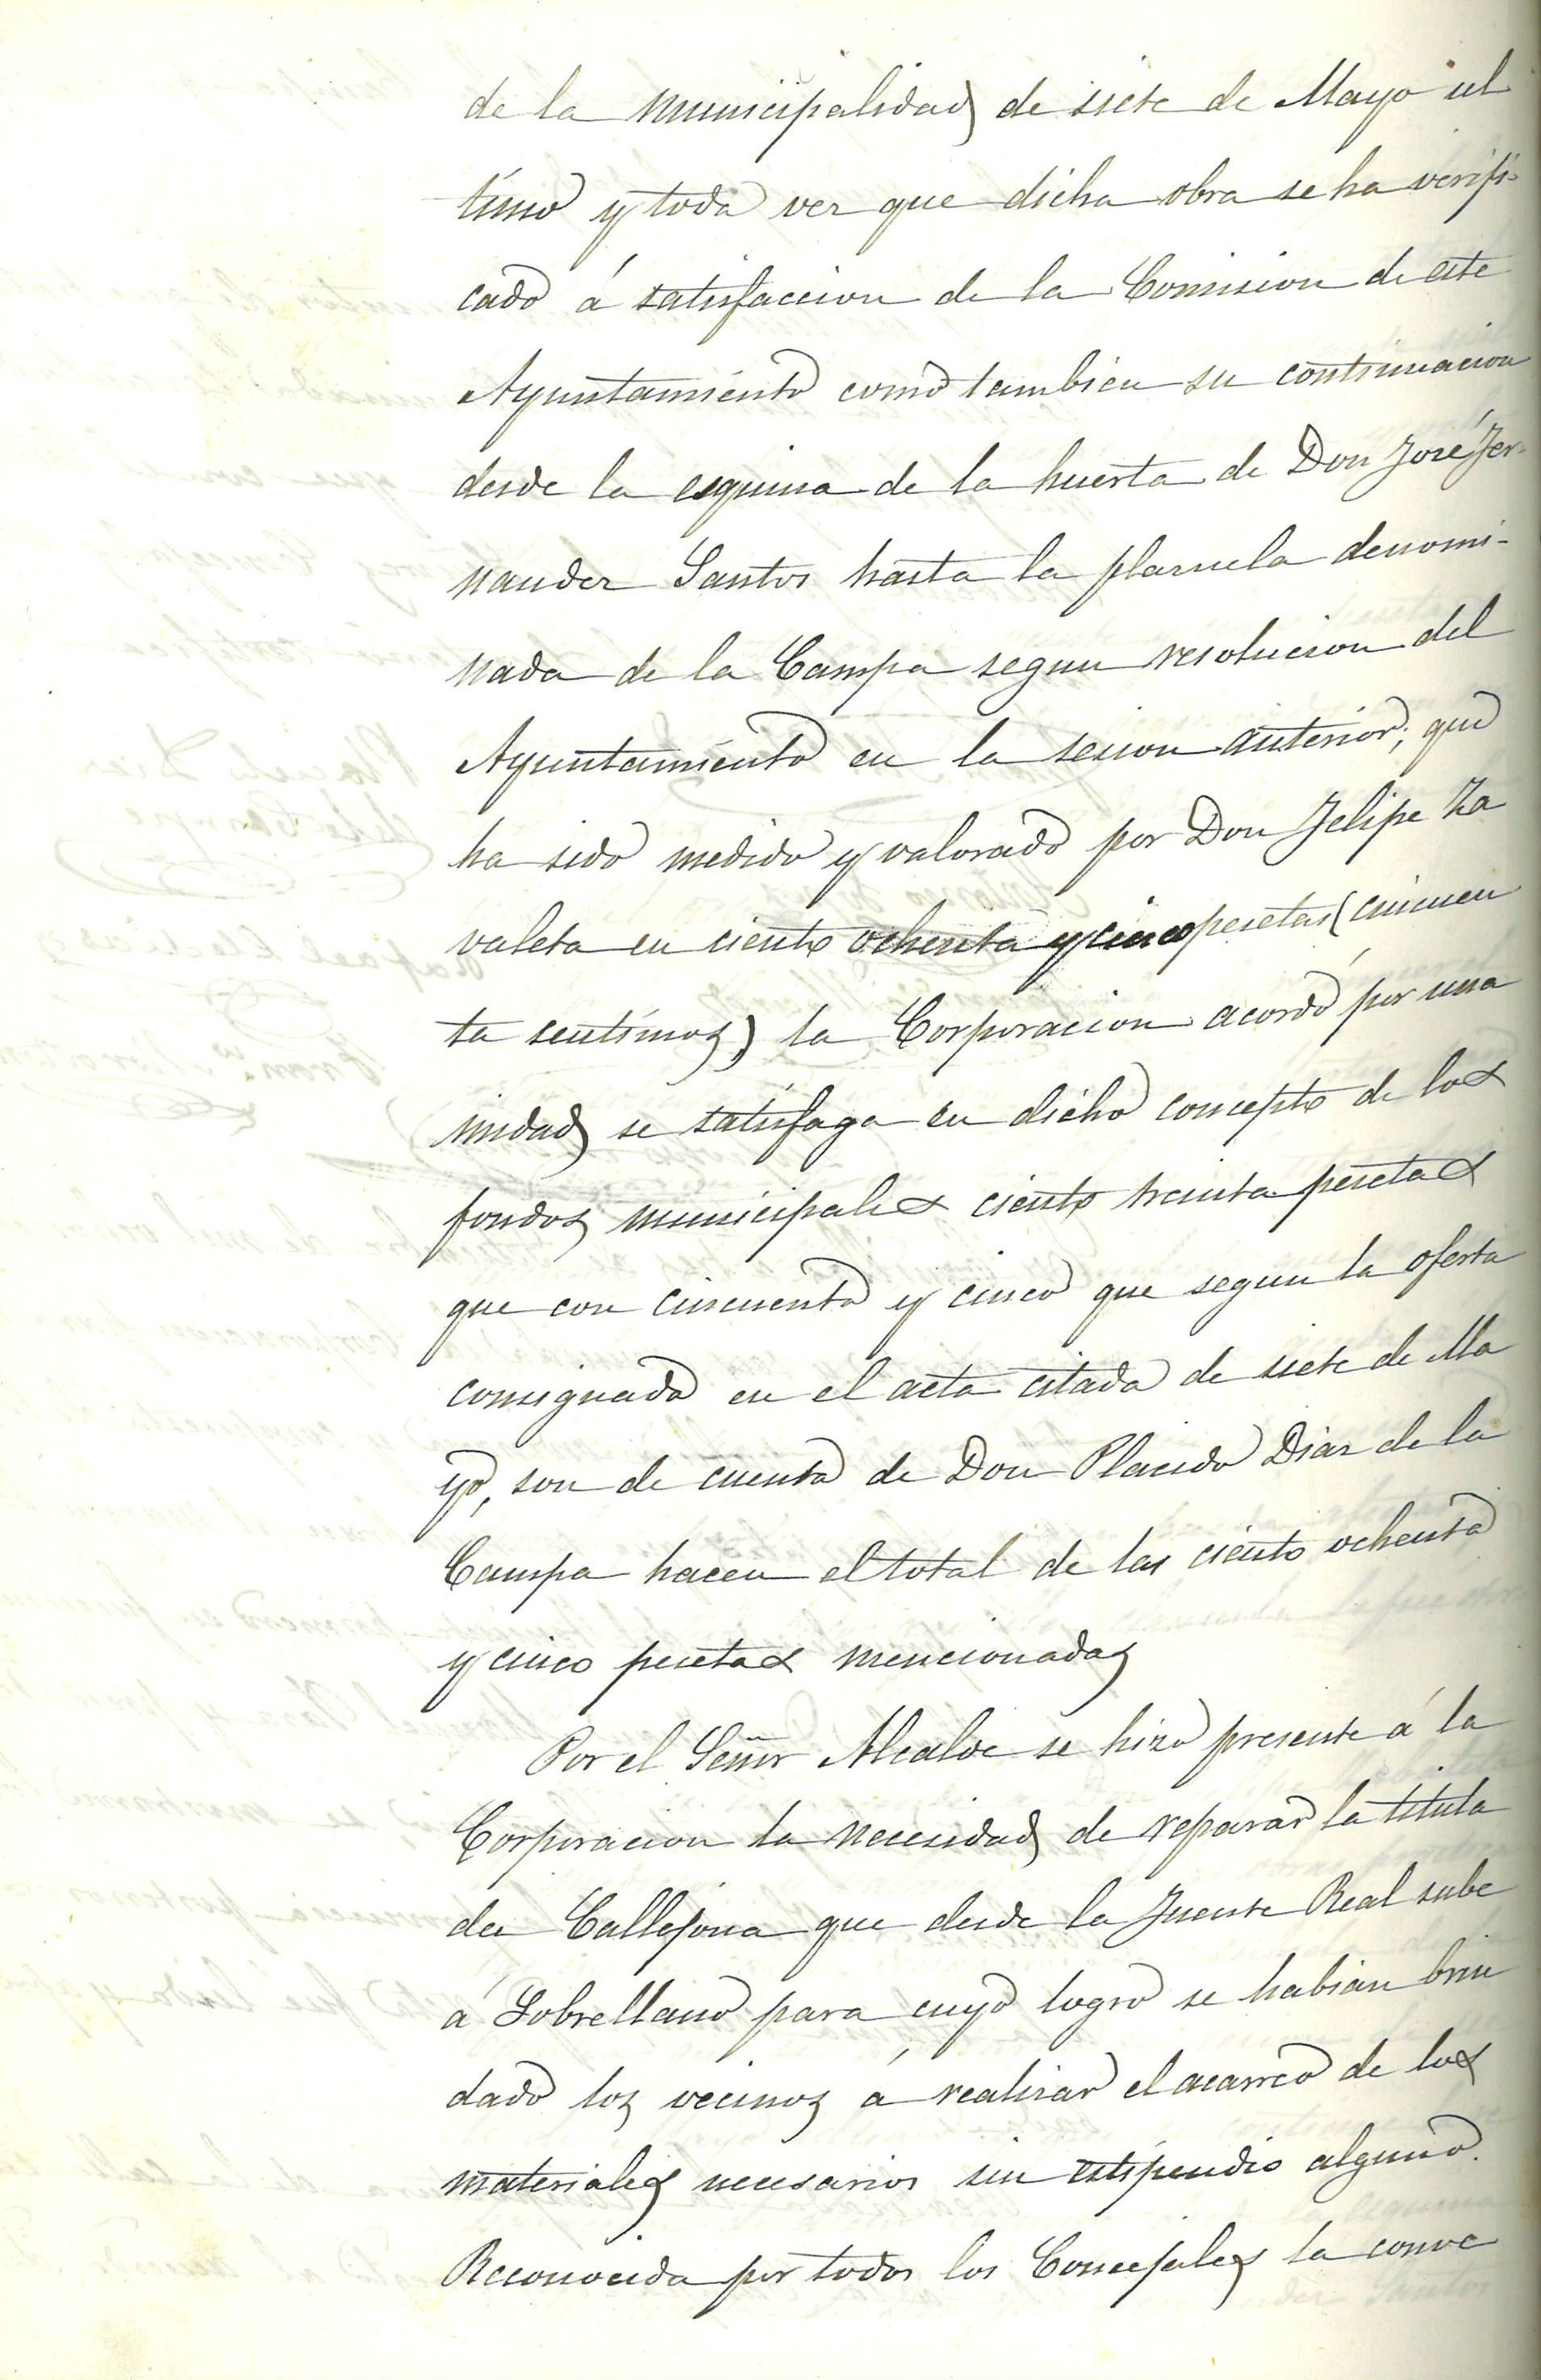 de la Municipalidad de siete de Mayo ul
timo y toda vez que dicha obra se ha verifi-
cado á satisfaccion de la Comision de este
Ayuntamiento como tambien su continuacion
desde la esquina de la huerta de Don José Fer-
nandez Santos hasta la plazuela denomi-
nada de la Campa segun resolucion del
Ayuntamiento en la sesion anterior; que
ha sido medido y valorado por Don Felipe Za
valeta en ciento ochenta y cinco pesetas (cincuen
ta centimos) la Corporacion acordó por una
nidad se satisfaga en dicho concepto de los
fondos municipales ciento treinta pesetas
que con cincuenta y cinco que segun la oferta
consignada en el acta citada de siete de Ma
yo, son de cuenta de Don Placido Diaz de la
Campa hacen el total de las ciento ochenta
y cinco pesetas mencionadas
Por el Señor Alcalde se hizo presente á la
Corporacion la necesidad de reparar la titula
da Callejona que desde la Fuente Real sube
á Sobrellano para cuyo logro se habian brin
dado los vecinos á realizar el acarreo de los
materiales necesarios sin estipendio alguno.
Reconocida por todos los Concejales la conve